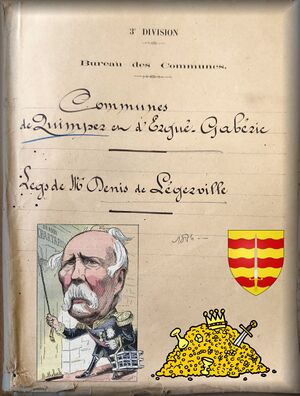 3e DIVISION
Bureau des Communes.
Communes
de Quimper et d'Ergué-Gabéric
Legs de Mr Denis de Légerville